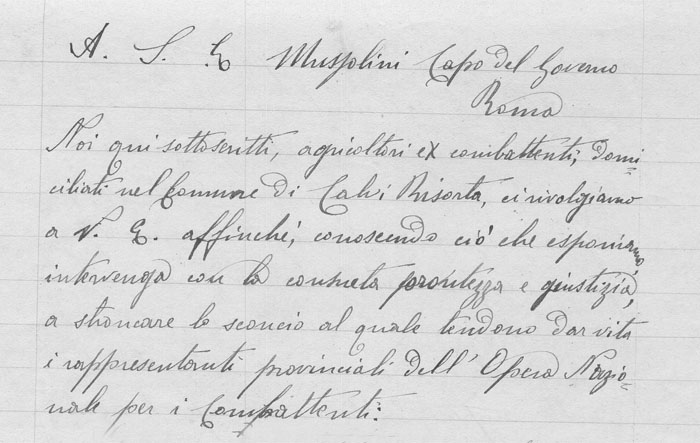 A. S. E. Mussolini Capo del Governo
Roma
Noi qui sottoscritti, agricoltori ex combattenti, domi-
ciliati nel Comune di Calvi Risorta, ci rivolgiamo
a V. E. affinché, conoscendo ciò che esponiamo,
intervenga con la consueta prontezza e giustizia,
a stroncare lo sconcio al quale tendono dar vita
i rappresentanti provinciali dell'Opera Nazio-
nale per i Combattenti: